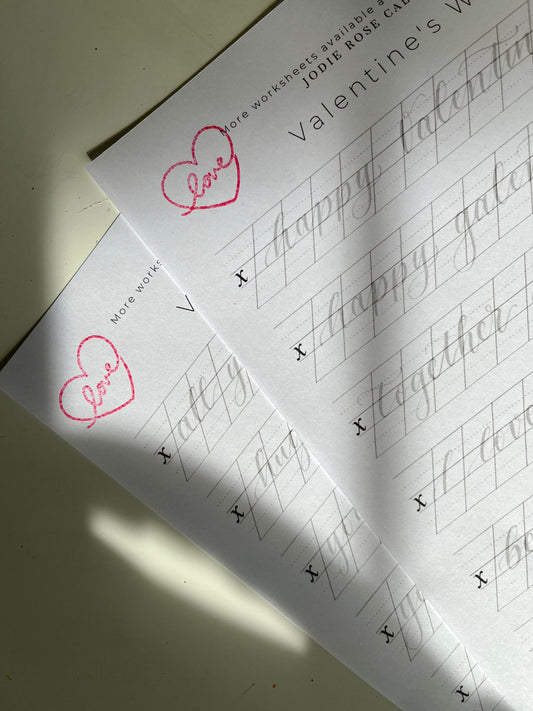 More worksheets available a
JODIE ROSE CAL
Valentine's W
love
x happy valentin
x happy galen
x together
x i love
x be
More works
V
love
x all y
x hug
x
x
x